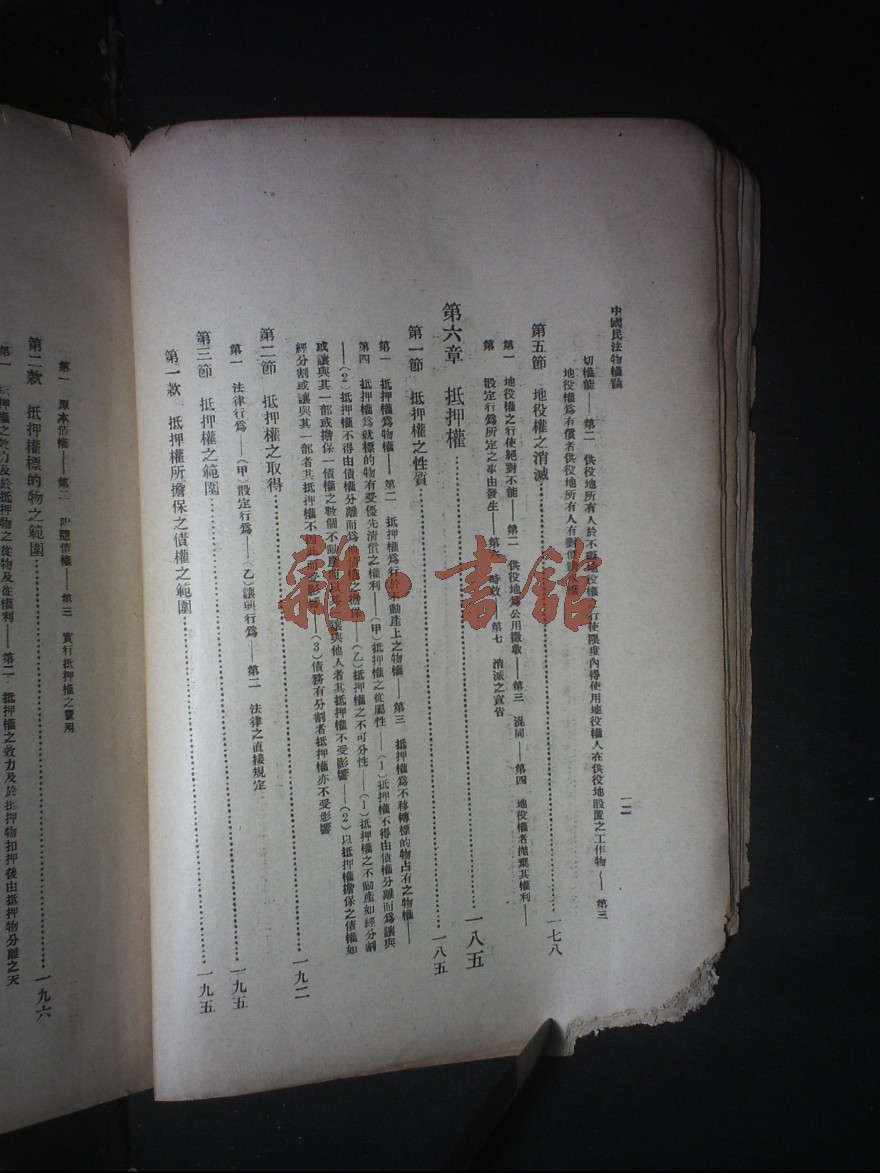 中國民法物權論
一二
切權能——第二　供役地所有人於不礙地役權之行使限度內得使用地役權人在供役地設置之工作物——第三
地役權為有償者供役地所有人有對價
第五節　地役權之消滅……一七八
第一　地役權之行使絕對不能——第二　供役地為公用徵收——第三　混同——第四　地役權者拋棄其權利——
第　設定行為所定之事由發生——第六　時效——第七　消滅之宣告
第六章　抵押權……一八五
第一節　抵押權之性質……一八五
第一　抵押權為物權——第二　抵押權為行於不動產上之物權——第三　抵押權為不移轉標的物占有之物權——
第四　抵押權為就標的物有受優先清償之權利——(甲)抵押權之從屬性——(1)抵押權不得由債權分離而為讓與
——(2)抵押權不得由債權分離而為他債權之擔保——(乙)抵押權之不可分性——(1)抵押權之不動產如經分割
或讓與其一部或擔保一債權之數個不動產而以其一讓與他人者其抵押權不受影響——(2)以抵押權擔保之債權如
經分割或讓與其一部者其抵押權不因此而受影響——(3)債務有分割者抵押權亦不受影響
第二節　抵押權之取得……一九二
第一　法律行為——(甲)設定行為——(乙)讓與行為——第二　法律之直接規定
第三節　抵押權之範圍……一九五
第一款　抵押權所擔保之債權之範圍……一九五
第一　原本債權——第二　附隨債權——第三　實行抵押權之費用
第二款　抵押權標的物之範圍……一九六
第一　抵押權之效力及於抵押物之從物及從權利——第二　抵押權之效力及於抵押物扣押後由抵押物分離之天
雜·書館